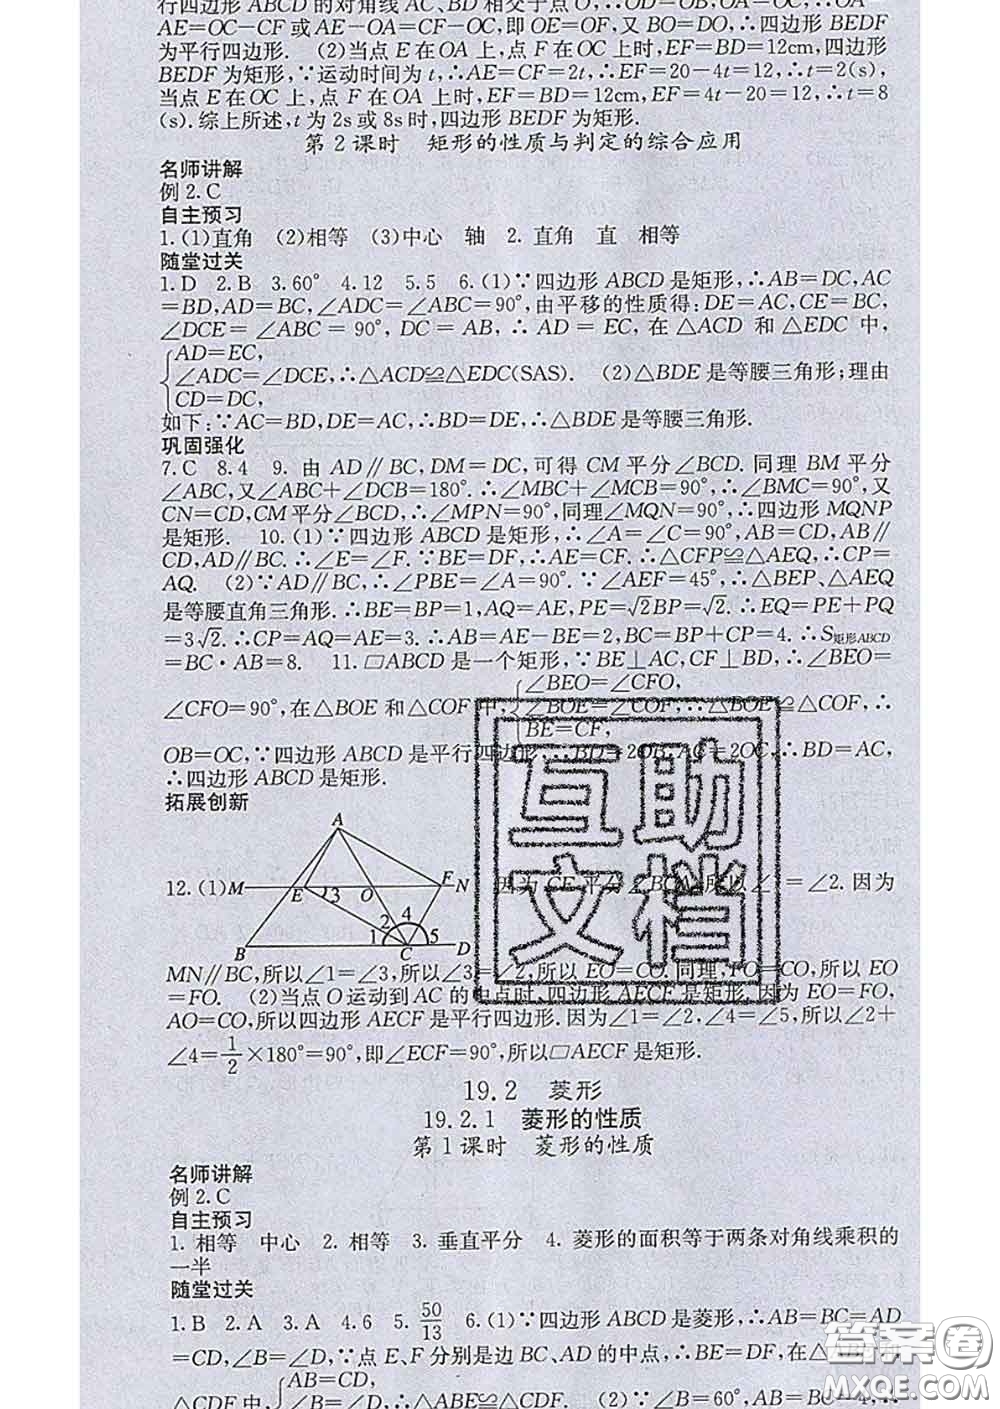 行四边形 ABCD 的对角线 AC、BD 相交于点 O,∴OD=OB,OA=OC,∴OA-
AE=OC-CF 或 AE-OA=CF-OC,即 OE=OF,又 BO=DO,∴四边形 BEDF
为平行四边形. (2)当点 E 在 OA 上,点 F 在 OC 上时,EF=BD=12cm,四边形
BEDF 为矩形,∵运动时间为 t,∴AE=CF=2t,∴EF=20-4t=12,∴t=2(s),
当点 E 在 OC 上,点 F 在 OA 上时,EF=BD=12cm,EF=4t-20=12,∴t=8
(s).综上所述,t 为 2s 或 8s 时,四边形 BEDF 为矩形.
第 2 课时 矩形的性质与判定的综合应用
名师讲解
例 2.C
自主预习
1.(1)直角 (2)相等 (3)中心 轴 2. 直角 直 相等
随堂过关
1.D 2.B 3.60° 4.12 5.5 6.(1)∵四边形 ABCD 是矩形,∴AB=DC,AC
=BD,AD=BC,∠ADC=∠ABC=90°,由平移的性质得:DE=AC,CE=BC,
∠DCE=∠ABC=90°,DC=AB,∴AD=EC,在△ACD 和△EDC 中,
AD=EC,
∠ADC=∠DCE,∴△ACD≌△EDC(SAS). (2)△BDE 是等腰三角形;理由
CD=DC,
如下:∵AC=BD,DE=AC,∴BD=DE,∴△BDE 是等腰三角形.
巩固强化
7.C 8.4 9. 由 AD∥BC,DM=DC,可得 CM 平分∠BCD. 同理 BM 平分
∠ABC,又∠ABC+∠DCB=180°.∴∠MBC+∠MCB=90°,∴∠BMC=90°,又
CN=CD,CM 平分∠BCD,∴∠MPN=90°,同理∠MQN=90°,∴四边形 MQNP
是矩形. 10.(1)∵四边形 ABCD 是矩形,∴∠A=∠C=90°,AB=CD,AB∥
CD,AD∥BC.∴∠E=∠F.∵BE=DF,∴AE=CF.∴△CFP≌△AEQ,∴CP=
AQ. (2)∵AD∥BC,∴∠PBE=∠A=90°.∵∠AEF=45°,∴△BEP、△AEQ
是等腰直角三角形.∴BE=BP=1,AQ=AE,PE=√2BP=√2.∴EQ=PE+PQ
=3√2.∴CP=AQ=AE=3.∴AB=AE-BE=2,BC=BP+CP=4.∴S矩形ABCD
=BC·AB=8. 11.▱ABCD 是一个矩形,∵BE⊥AC,CF⊥BD,∴∠BEO=
∠CFO=90°,在△BOE 和△COF 中,
∠BEO=∠CFO,
∠BOE=∠COF,∴△BOE≌△COF,∴
BE=CF,
OB=OC,∵四边形 ABCD 是平行四边形,∴BD=2OB,AC=2OC,∴BD=AC,
∴四边形 ABCD 是矩形.
拓展创新
A
12.(1) M E 3 O F N 因为 CE 平分∠BCA,所以∠1=∠2.因为
2 4
B 1 5 C D
MN∥BC,所以∠1=∠3,所以∠3=∠2,所以 EO=CO.同理,FO=CO,所以 EO
=FO. (2)当点 O 运动到 AC 的中点时,四边形 AECF 是矩形.因为 EO=FO,
AO=CO,所以四边形 AECF 是平行四边形.因为∠1=∠2,∠4=∠5,所以∠2+
∠4=1/2×180°=90°,即∠ECF=90°,所以▱AECF 是矩形.
19.2 菱形
19.2.1 菱形的性质
第 1 课时 菱形的性质
名师讲解
例 2.C
自主预习
1. 相等 中心 2. 相等 3. 垂直平分 4. 菱形的面积等于两条对角线乘积的
一半
随堂过关
1.B 2.A 3.A 4.6 5. 50/13 6.(1)∵四边形 ABCD 是菱形,∴AB=BC=AD
=CD,∠B=∠D,∵点 E、F 分别是边 BC、AD 的中点,∴BE=DF,在△ABE
AB=CD,
△CDF 中,∠B=∠D,∴△ABE≌△CDF. (2)∵∠B=60°,AB=BC=4,
互助
文档
答案圈
MXQE.COM